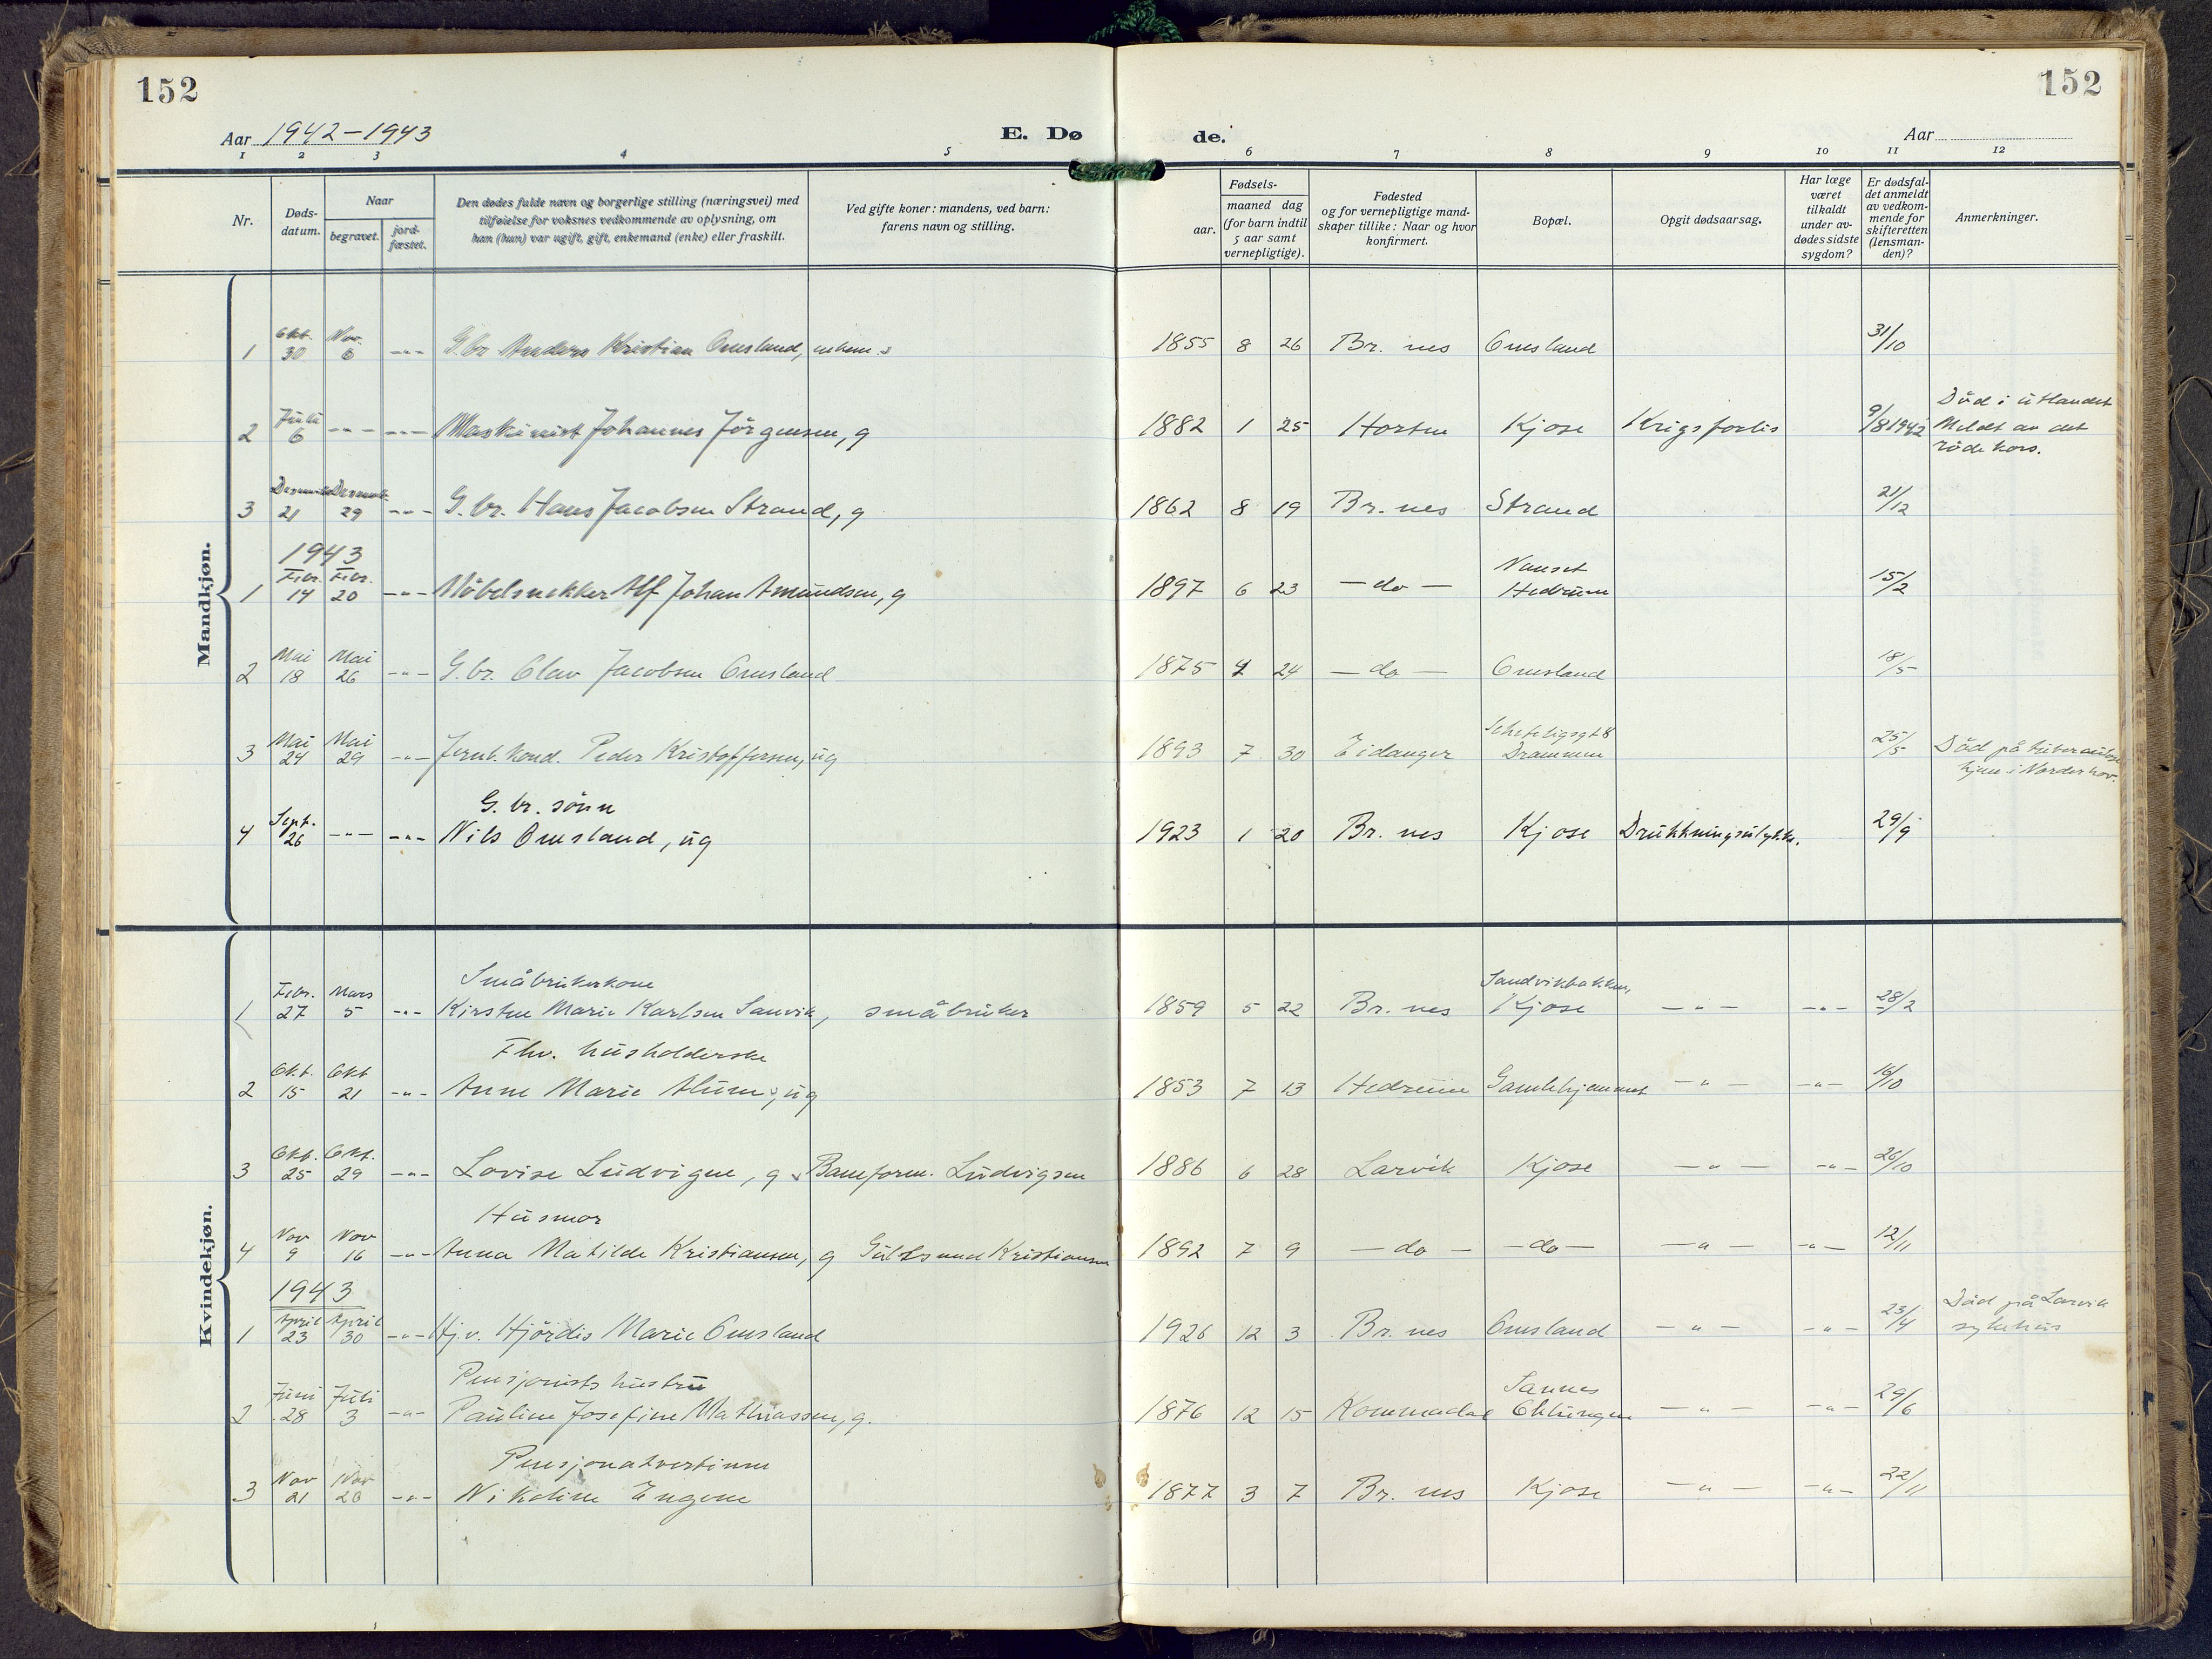 152
152
Aar 1942-1943
E. Dø
de.
Aar
1 2 3 4 5 6 7 8 9 10 11 12
Nr.
Døds-
datum.
Naar
begravet.
jord-
fæstet.
Den dødes fulde navn og borgerlige stilling (næringsvei) med
tilføielse for voksnes vedkommende av oplysning, om
han (hun) var ugift, gift, enkemand (enke) eller fraskilt.
Ved gifte koner: mandens, ved barn:
farens navn og stilling.
Fødsels-
aar.
maaned dag
(for barn indtil
5 aar samt
vernepligtige).
Fødested
og for vernepligtige mand-
skaper tillike: Naar og hvor
konfirmert.
Bopæl.
Opgit dødsaarsag.
Har læge
været
tilkaldt
under av-
dødes sidste
sygdom?
Er dødsfal-
det anmeldt
av vedkom-
mende for
skifteretten
(lensman-
den)?
Anmerkninger.
Mandkjøn.
Okt. Nov.
1 30 6 -"- G.br Anders Kristian Omsland, 1855 8 26 Br. nes Omsland 31/10
Juli
2 6 -"- -"- Maskinist Johannes Jörgensen, g 1882 1 25 Horten Kjose Krigsforlis 9/8 1942
Död i utlandet
Meldt av det
röde kors.
3 21 29 -"- G.br. Hans Jacobsen Strand, g 1862 8 19 Br. nes Strand 21/12
1943
Febr. Febr.
Nanset
1 14 20 -"- Möbelsnekker Alf Johan Amundsen, g 1897 6 23 -do- Hedrum 15/2
Mai Mai
2 18 26 -"- G.br. Olav Jacobsen Omsland 1875 24 -do- Omsland 18/5
Mai Mai
3 24 29 -"- Jernb.kond. Peder Kristoffersen, ug 1893 7 30 Eidanger Drammen 25/5
Död på tuberkulose
hjem i Norderhov.
G.br. sönn
Sept.
4 26 -"- -"- Nils Omsland, ug 1923 1 20 Br. nes Kjose Drukkningsulykke. 29/9
Kvindekjøn.
Småbrukerkone
Febr. Mars
Sandvikbakken,
1 27 5 -"- Kirsten Marie Karlsen Sanvik, småbruker 1859 5 22 Br. nes Kjose -"- -"- 28/2
Fhv. husholderske
Okt. Okt
2 15 21 -"- Anne Marie Alum, ug 1853 7 13 Hedrum Gamlehjemmet -"- -"- 16/10
Okt. Okt.
3 25 29 -"- Lovise Ludvigsen, g Baneform. Ludvigsen 1886 6 28 Larvik Kjose -"- -"- 26/10
Husmor
Nov Nov
4 9 16 -"- Anna Matilde Kristiansen, g Kristiansen 1892 7 9 -do- -do- -"- -"- 12/11
1943
April April
1 23 30 -"- Hj.v. Hjördis Marie Omsland 1926 12 3 Br. nes Omsland -"- -"- 23/4
Död på Larvik
sykehus
Pensjonists hustru
Juni Juli
Sannes
2 28 3 -"- Pauline Josefine Mathiassen, g. 1876 12 15 Kommadal -"- -"- 29/6
Pensjonatvertinne
Nov Nov
3 21 26 -"- Nikoline Engene 1877 3 7 Br. nes Kjose -"- -"- 22/11